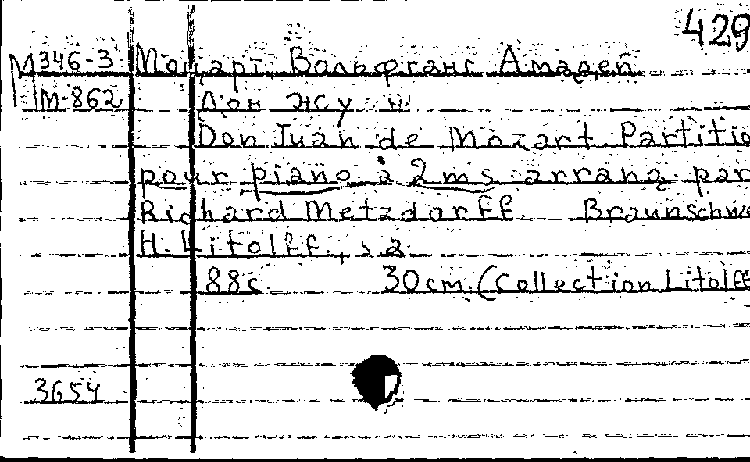 429
М346-3 Моцарт, Вольфганг Амадей
М-862 Дон Жуан
Don Juan de Mozart. Partitio
pour piano à 2 ms arrang par
Richard Metzdorff Braunschwe
H. Litolff, s.a.
88с 30cm. (Collection Litolff
3654